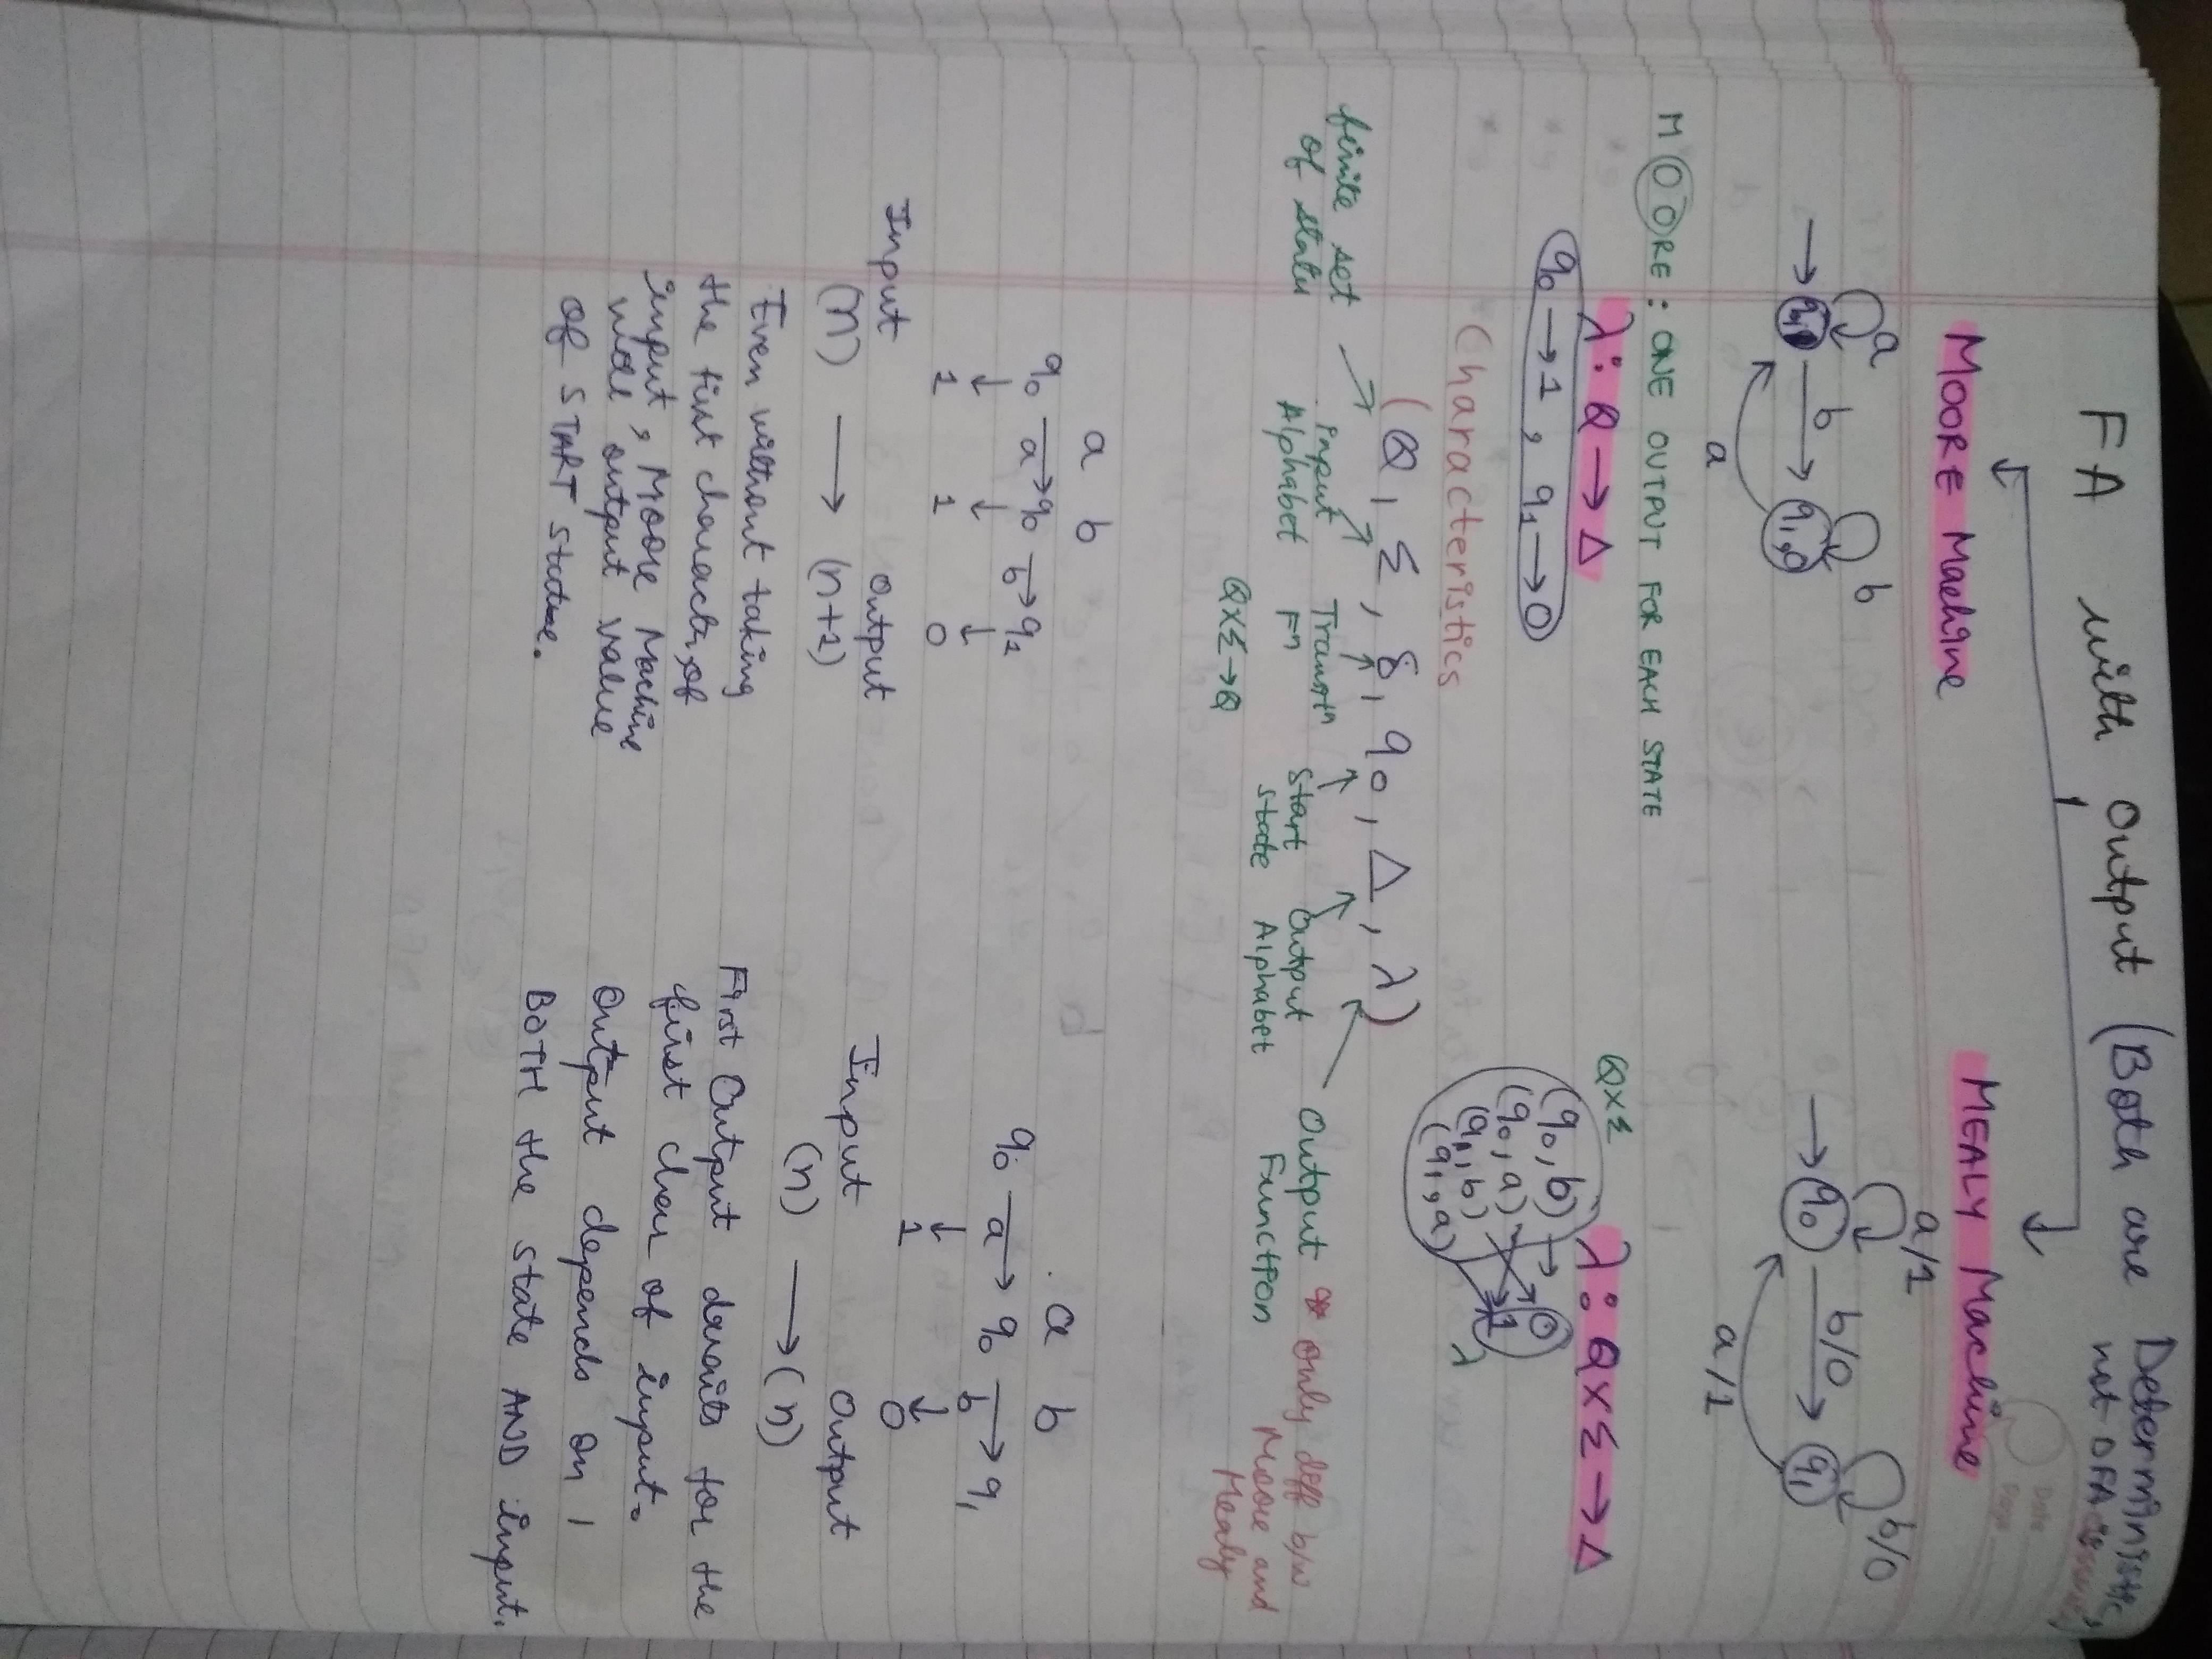 FA with Output (Both are Deterministic,
not DFA
Date
Page
MOORE Machine
MEALY Machine
a
b
a/1
b/0
→ q0,1 b→ q1,0
→ q0 b/0→ q1
a
a/1
MOORE : ONE OUTPUT FOR EACH STATE
Q×Σ
λ: Q → Δ
λ: Q×Σ → Δ
q0 → 1 , q1 → 0
(q0, b) → 0
(q0, a)
(q1, b) 1
(q1, a)
λ
Characteristics
(Q, Σ, δ, q0, Δ, λ)
finite set
of states
Input
Alphabet
Transtⁿ
Fⁿ
Q×Σ→Q
Start
state
Output
Alphabet
Output
Function
* only diff b/w
Moore and
Mealy
a b
q0 a→ q0 b→ q1
↓ ↓ ↓
1 1 0
Input Output
(n) → (n+1)
Even without taking
the first character of
input, Moore Machine
output value
of START state.
a b
q0 a→ q0 b→ q1
↓ ↓
1 0
Input Output
(n) → (n)
First Output for the
first char of input.
Output depends on
BOTH the state AND input.